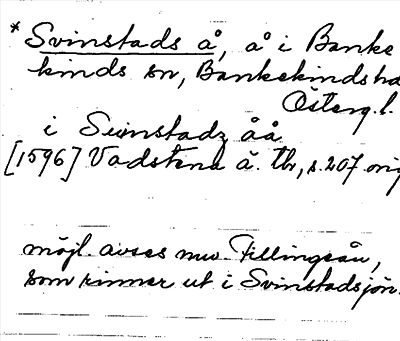 * Svinstads å, å i Banke
kinds sn, Bankekinds ha
Österg.l.
i Suinstadz åå
[1596] Vadstena ä. tb, s. 207 orig
möjl. avses nuv. Fillingeån,
som rinner ut i Svinstadsjön.